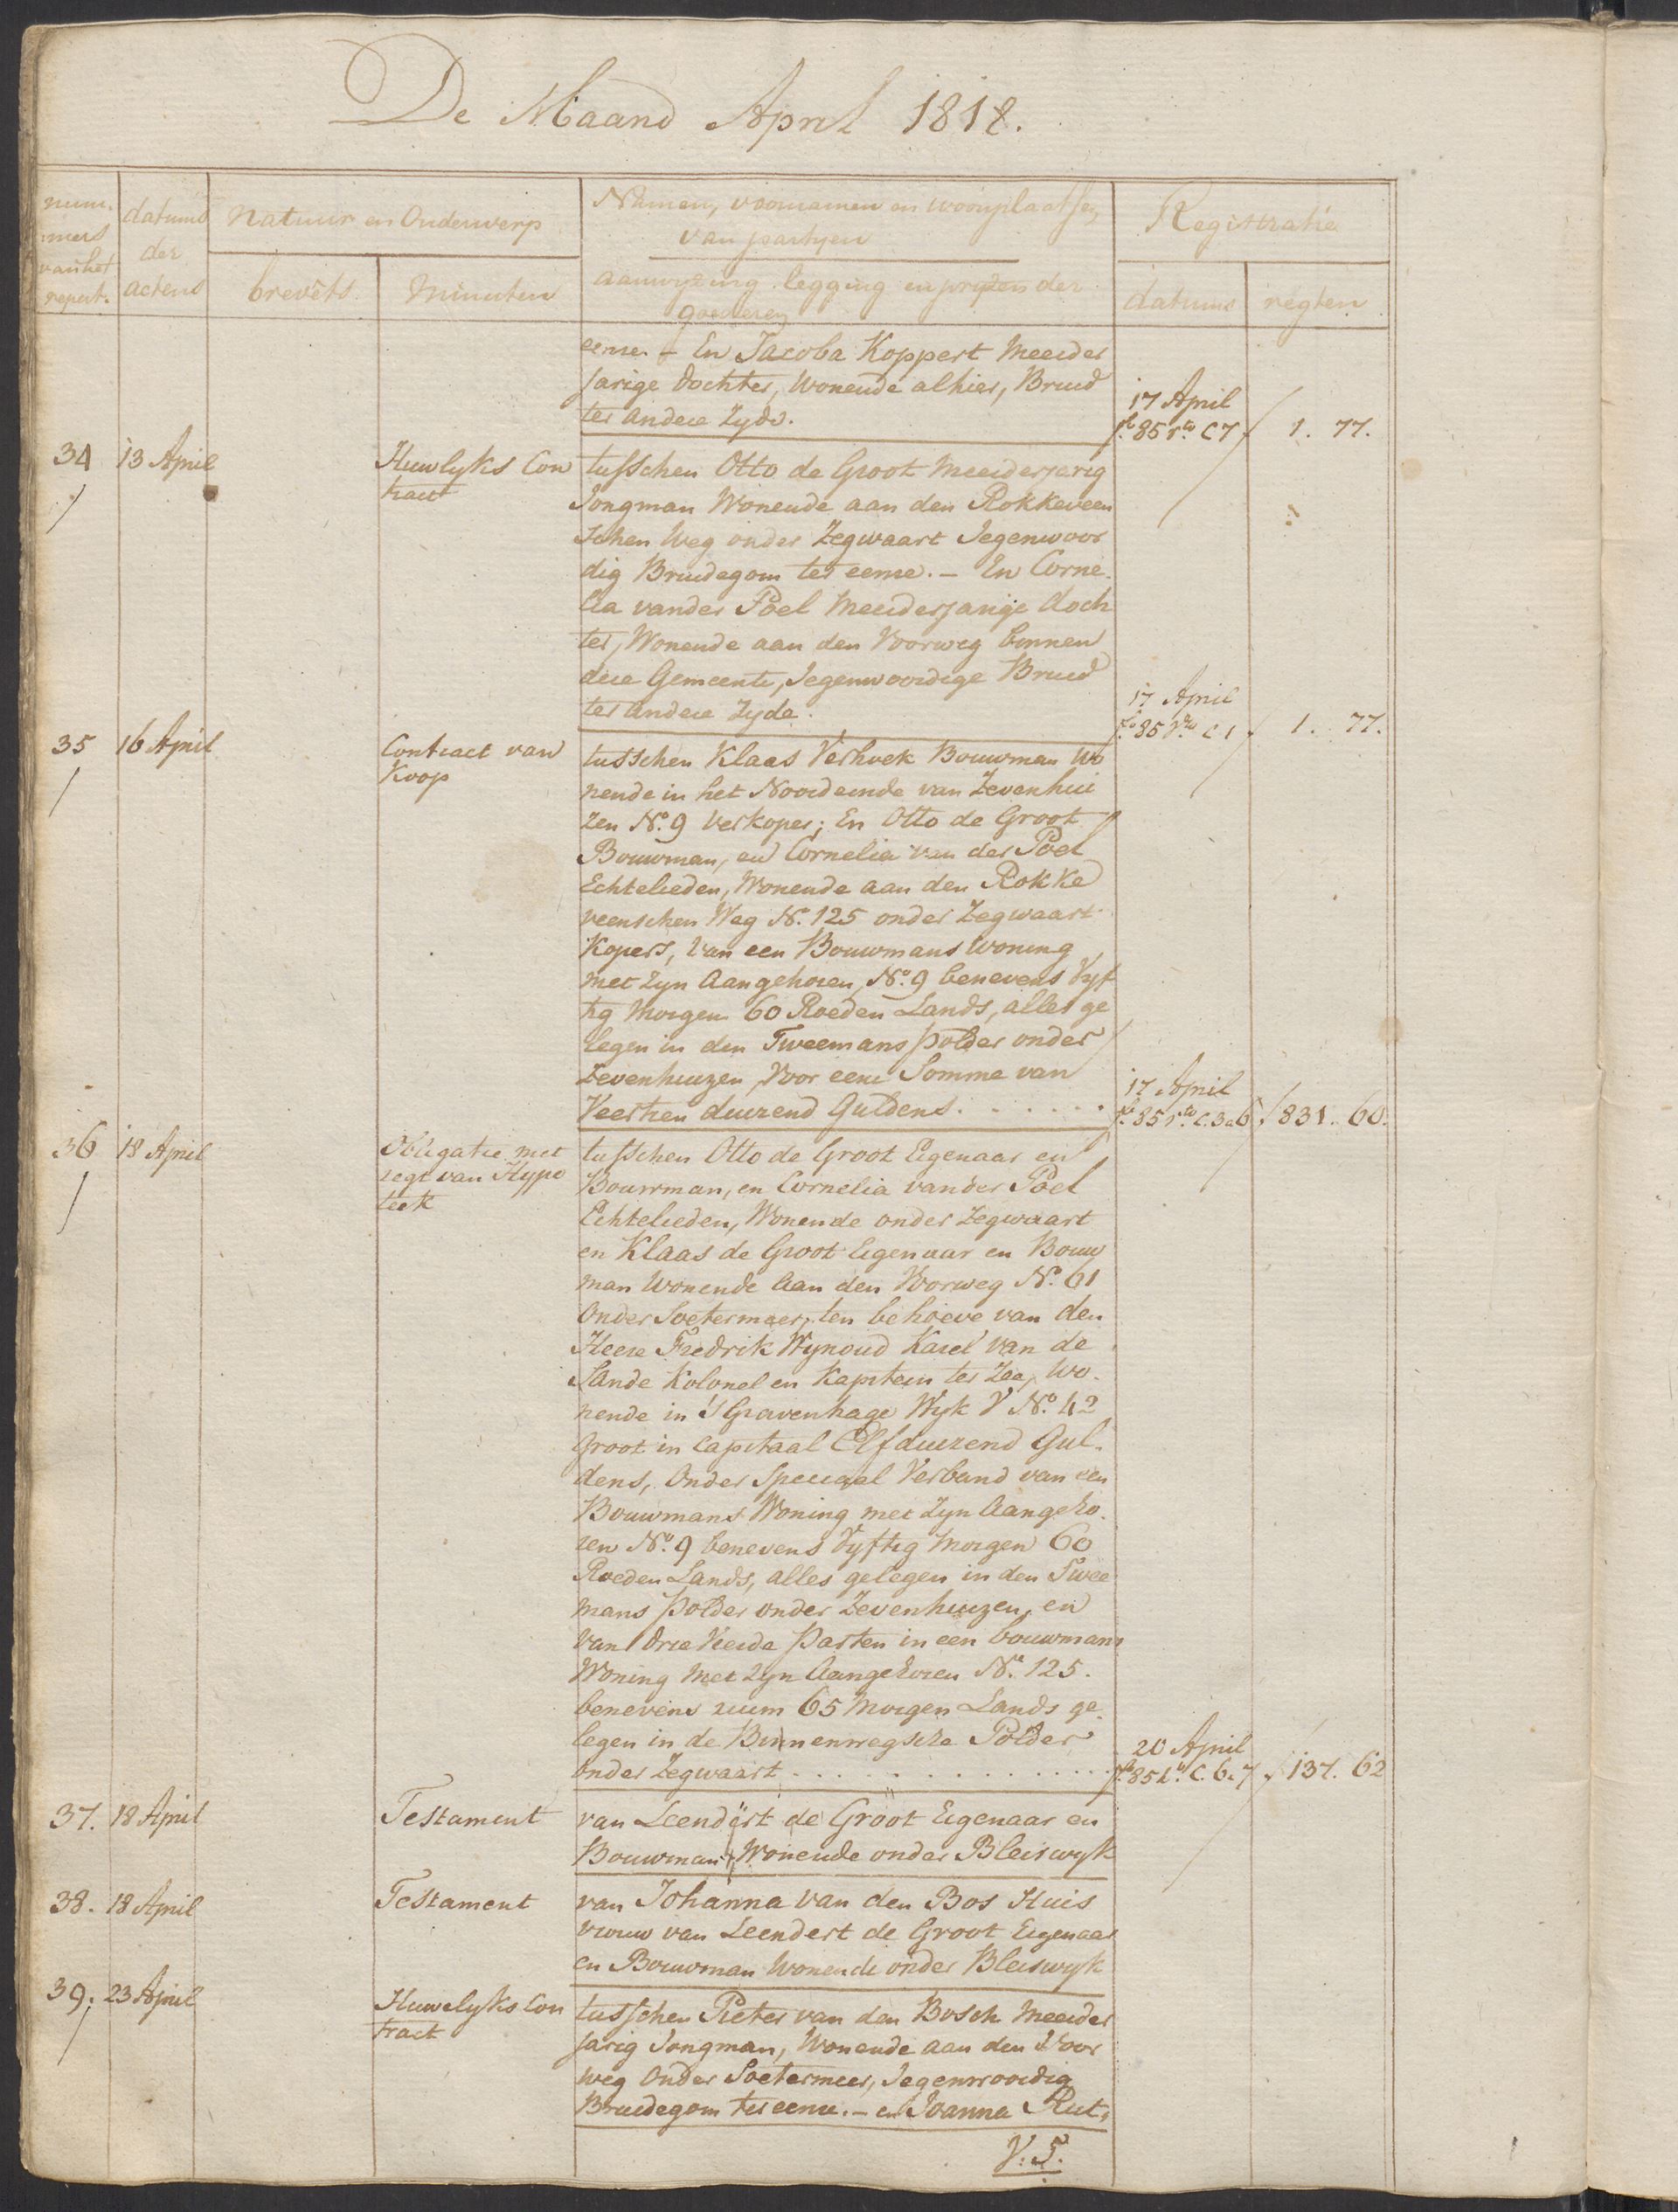 De Maand April 1818.
num.
mers
van het
repert.
datums
der
actens
Natuur en Onderwerp
brevêts
Minuten
Namen, voornamen en woonplaatsen
van partyen
aanwyzing legging en pryzen der
goederen
Registratie
datums
regten
eene. - En Jacoba Koppert Meerder
jarige dochter, Wonende alhier, Bruid
ter andere Zyde.
17 April
fo. 85 rto C7
1. 77.
34
13 April
Huwlyks Con
tract
tusschen Otto de Groot Meerderjarig
Jongman Wonende aan den Rokkeveen
schen Weg onder Zegwaart Jegenwoor
dig Bruidegom ter eene. - En Corne
lia vander Poel Meerderjarige doch
ter, Wonende aan den Voorweg binnen
deze Gemeente, Jegenwoordige Bruid
ter andere Zyde.
17 April
fo. 85 Vto C1
1. 77.
35
16 April
Contract van
Koop
tusschen Klaas Verhoek Bouwman Wo
nende in het Noordeinde van Zevenhui
zen No. 9 Verkoper; En Otto de Groot
Bouwman, en Cornelia van der Poel
Echtelieden, Wonende aan den Rokke
veenschen Weg No. 125 onder Zegwaart
Kopers, van een Bouwmans Woning
met zyn Aangehoren, No. 9 benevens Vyf
tig Morgen 60 Roeden Lands, alles ge
legen in den Tweemans polder onder
Zevenhuizen, Voor eene Somme van
Veertien duizend Guldens . . . . . .
17 April
fo. 85 rto C. 3a6
831. 60.
36
18 April
Obligatie met
regt van Hypo
teek
tusschen Otto de Groot Eigenaar en
Bouwman, en Cornelia vander Poel
Echtelieden, Wonende onder Zegwaart
en Klaas de Groot Eigenaar en Bouw
man Wonende aan den Voorweg No. 61
Onder Soetermeer, ten behoeve van den
Heere Fredrik Wynoud Karel van de
Sande Kolonel en Kapitein ter Zee, Wo-
nende in 'S Gravenhage Wyk V No. 42
Groot in Capitaal Elfduizend Gul-
dens, Onder Speciaal Verband van een
Bouwmans Woning met Zyn Aangeho-
ren No. 9 benevens Vyftig Morgen 60
Roeden Lands, alles gelegen in den Twee
mans polder onder Zevenhuizen, en
Van drie Vierde parten in een bouwmans
Woning Met Zyn Aangehoren No. 125.
benevens ruim 65 Morgen Lands ge-
legen in de Binnenwegsche Polder
onder Zegwaart . . . . . . . . . . . . . .
20 April
C. 6a7
137. 62
37.
18 April
Testament
van Leendert de Groot Eigenaar en
Bouwman, Wonende onder Bleiswyk
38.
18 April
Testament
van Johanna van den Bos Huis
vrouw van Leendert de Groot Eigenaar
en Bouwman Wonende onder Bleiswyk
39.
23 April
Huwelyks Con
tract
tusschen Pieter van den Bosch Meerder
jarig Jongman, Wonende aan den Voor
weg Onder Soetermeer, Jegenwoordig
Bruidegom ter eene. - en Joanna Rut,
V. T.